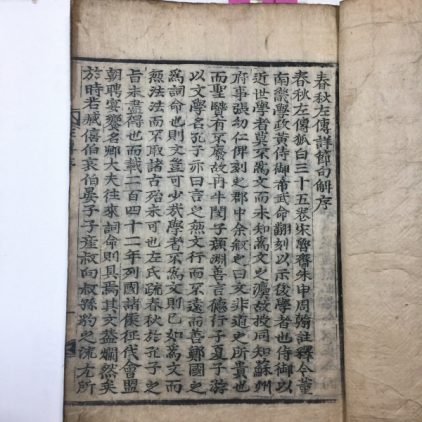 春秋左傳詳節句解序
春秋左傳狐白三十五卷宋魯齋朱申周翰註釋今董
南畿學政黃侍御希武命翻刻以示後學者也侍御以
近世學者莫不為文而未知為文之灋故授同知蘇州
府事張幼仁俾刻之郡中余叙之曰文非道之所貴也
而聖賢有不廢故冉牛閔子顏淵善言德行子夏子游
以文學名孔子亦曰言之無文行而不遠而善鄭國之
為詞命也則文豈可少哉學者不為文則已如為文而
無法法而不取諸古殆未可也左氏疏春秋於孔子之
旨未盡得也而載二百四十二年列國諸侯征伐會盟
朝聘宴饗名卿大夫往來詞命則具焉其文蓋爛然矣
於時若臧僖伯哀伯晏子子產叔向叔孫豹之流尤所